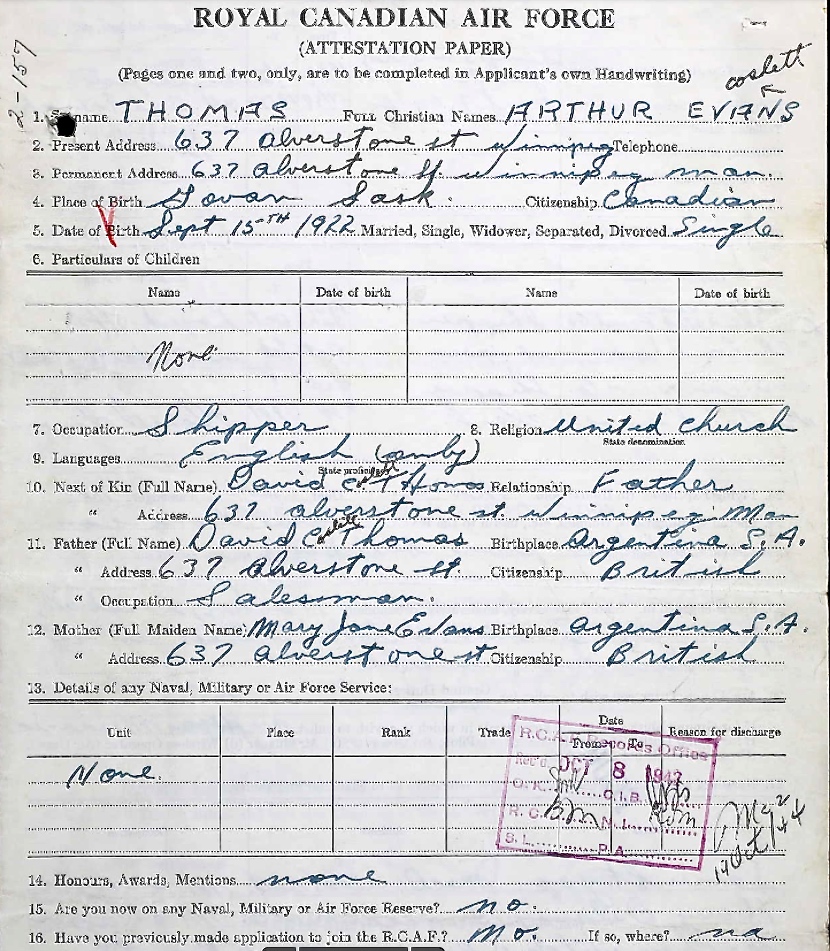 ROYAL CANADIAN AIR FORCE
(ATTESTATION PAPER)
(Pages one and two, only, are to be completed in Applicant's own Handwriting)
coslett
2-157
1. Surname THOMAS FULL Christian Names ARTHUR EVANS
2. Present Address 637 Alverstone st Winnipeg Telephone
3. Permanent Address 637 Alverstone St. Winnipeg Man.
4. Place of Birth Govan Sask. Citizenship Canadian
5. Date of Birth Sept 15TH 1922 Married, Single, Widower, Separated, Divorced Single
6. Particulars of Children
Name Date of birth Name Date of birth
None
7. Occupation Shipper 8. Religion United Church
State denomination
9. Languages English (only)
State proficiency
coslett
10. Next of Kin (Full Name) David C. Thomas Relationship Father
" Address 637 Alverstone st. Winnipeg Man
coslett
11. Father (Full Name) David C Thomas Birthplace Argentina S.A.
" Address 637 Alverstone st. Citizenship British
" Occupation Salesman.
12. Mother (Full Maiden Name) Mary Jane Evans Birthplace Argentina S.A.
" Address 637 Alverstone st Citizenship British
13. Details of any Naval, Military or Air Force Service:
Unit Place Rank Trade Date From To Reason for discharge
None.
R.C.A.F. Records Office
Rec'd. OCT 8 1942
O.K. C.I.B.
R.C. N.I.
S.L. P.A.
14. Honours, Awards, Mentions none
15. Are you now on any Naval, Military or Air Force Reserve? no.
16. Have you previously made application to join the R.C.A.F.? No. If so, where? na